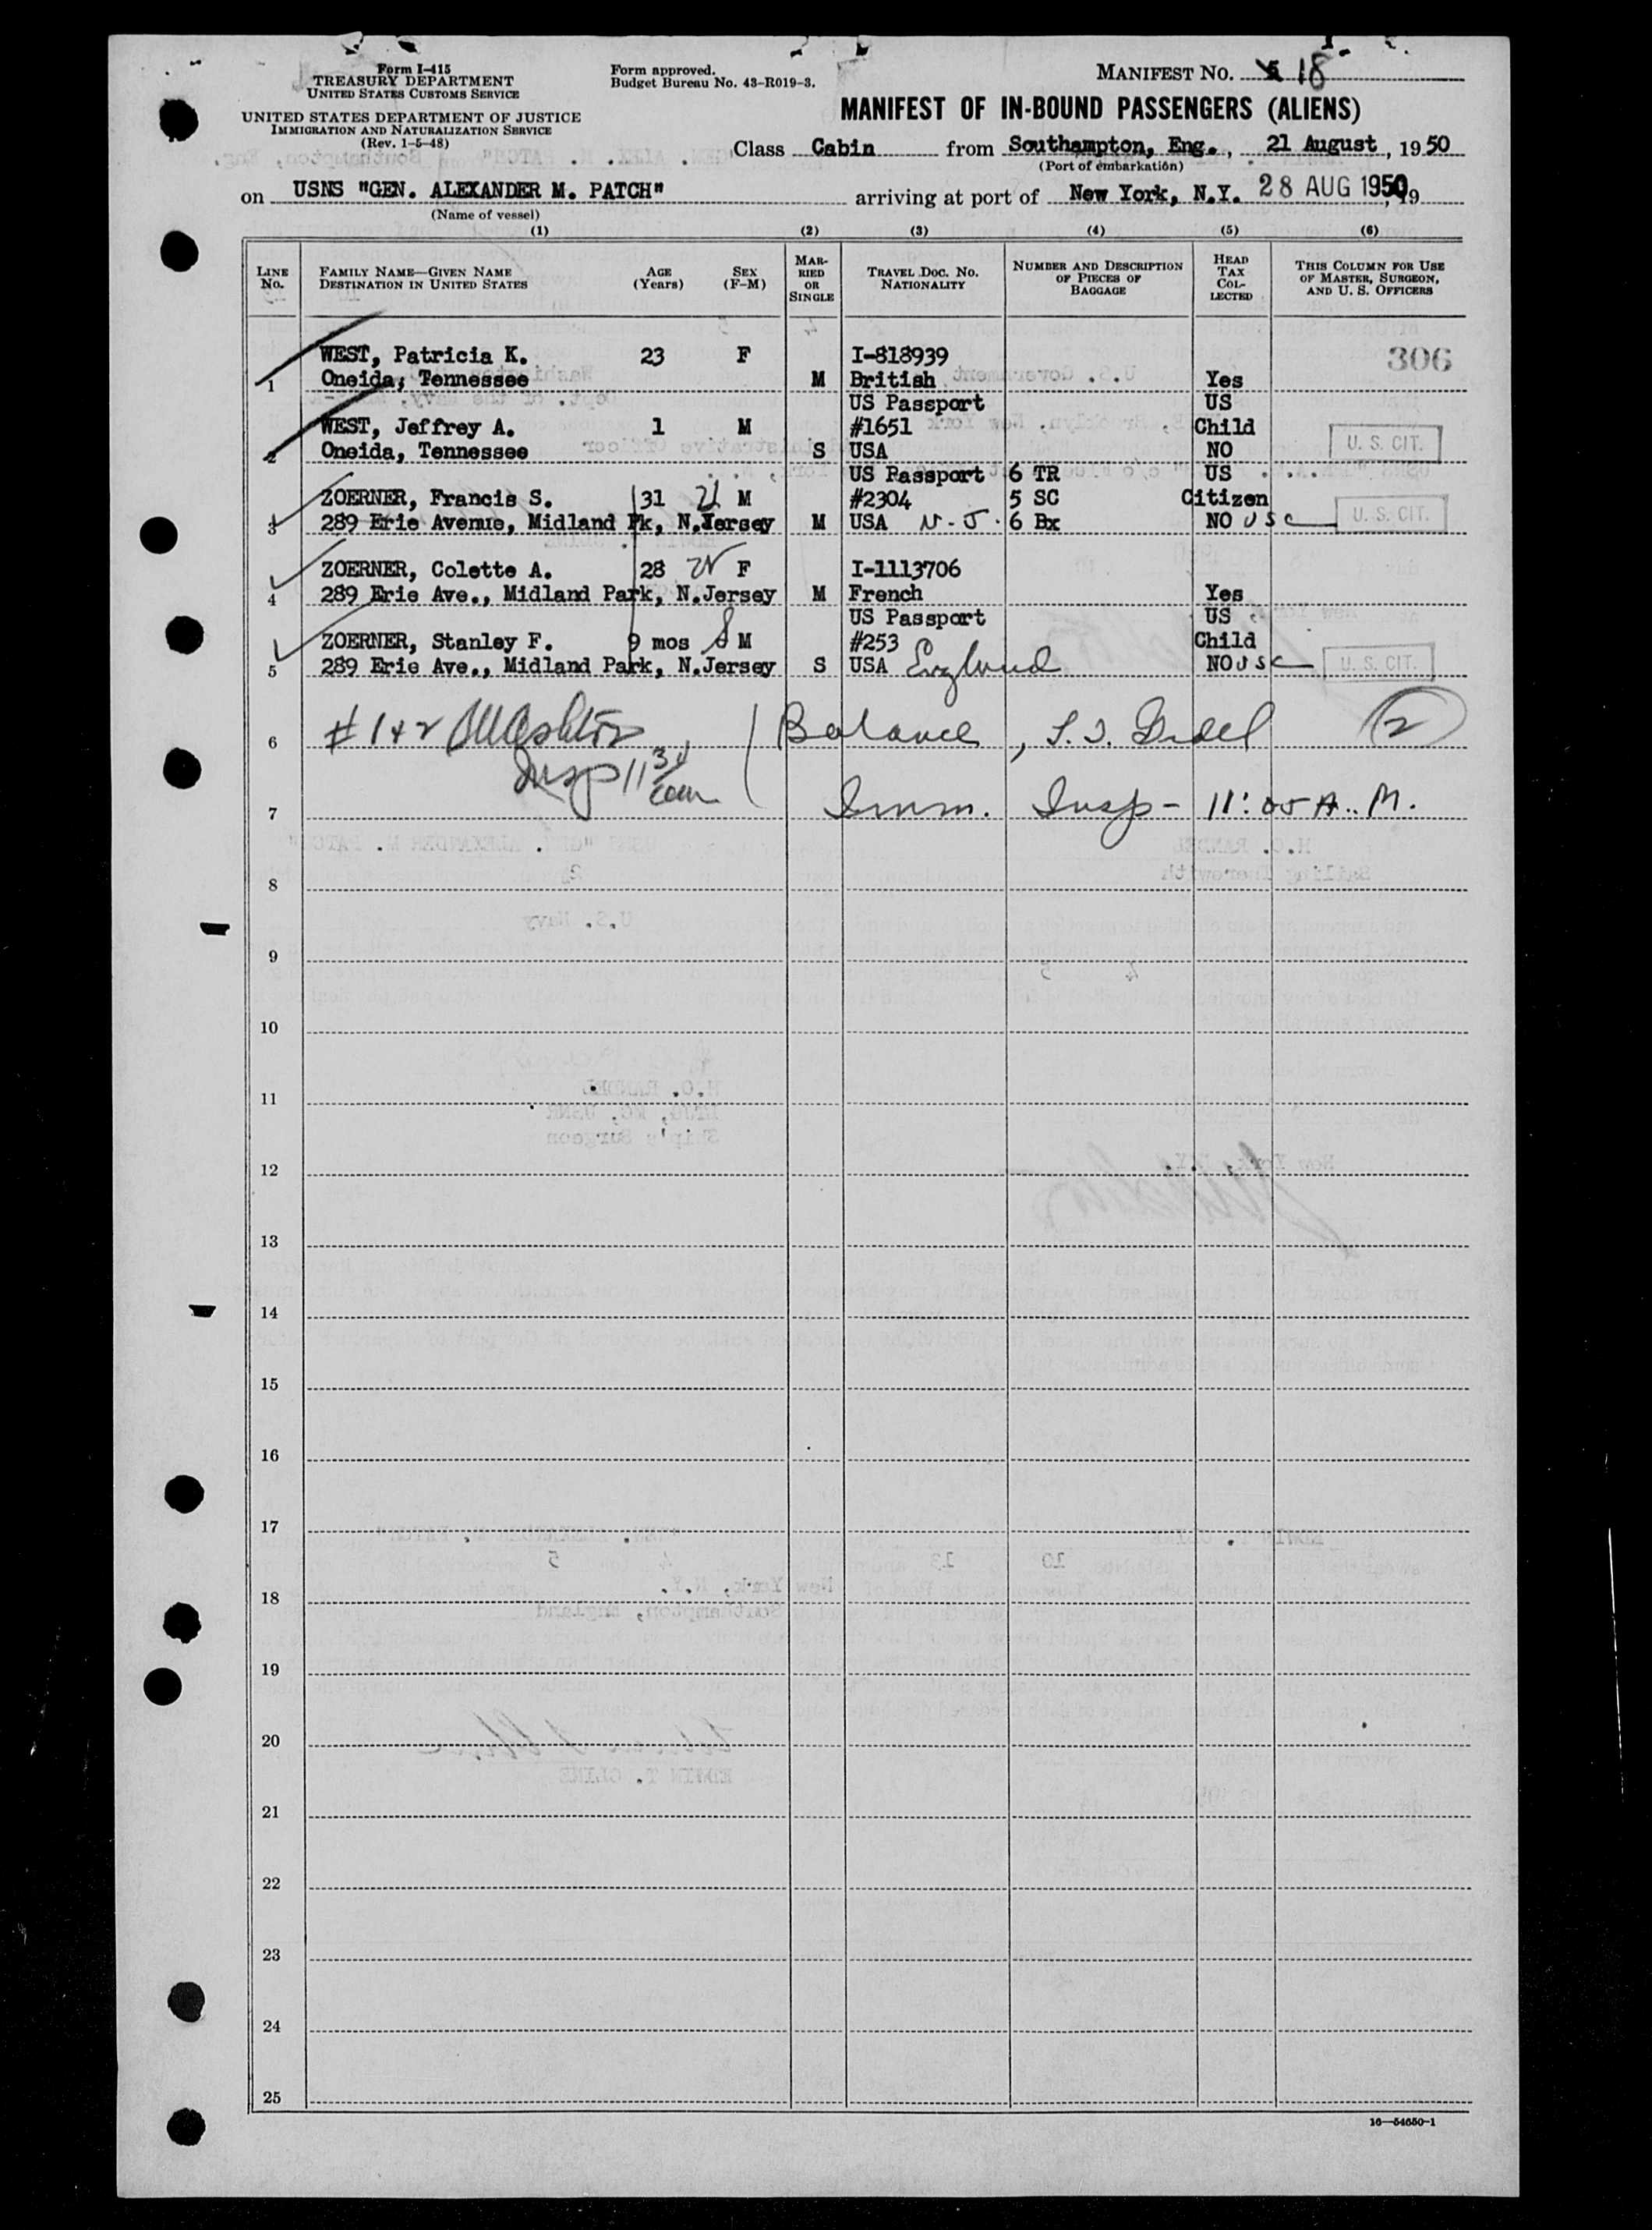 Form I-415
TREASURY DEPARTMENT
UNITED STATES CUSTOMS SERVICE
UNITED STATES DEPARTMENT OF JUSTICE
IMMIGRATION AND NATURALIZATION SERVICE
(Rev. 1-5-48)
Form approved.
Budget Bureau No. 43-R019-3.
MANIFEST NO. 18
MANIFEST OF IN-BOUND PASSENGERS (ALIENS)
Class Cabin from Southampton, Eng., 21 August, 1950
(Port of embarkation)
on USNS "GEN. ALEXANDER M. PATCH" arriving at port of New York, N.Y. 28 AUG 1950, 19
(Name of vessel)
(1) (2) (3) (4) (5) (6)
LINE No. FAMILY NAME—GIVEN NAME DESTINATION IN UNITED STATES AGE (Years) SEX (F-M) MARRIED OR SINGLE TRAVEL DOC. NO. NATIONALITY NUMBER AND DESCRIPTION OF PIECES OF BAGGAGE HEAD TAX COLLECTED THIS COLUMN FOR USE OF MASTER, SURGEON, AND U. S. OFFICERS
WEST, Patricia K. 23 F I-818939 306
1 Oneida, Tennessee M British Yes
US Passport US
WEST, Jeffrey A. 1 M #1651 Child
2 Oneida, Tennessee S USA NO U. S. CIT.
US Passport 6 TR US
ZOERNER, Francis S. 31 M #2304 5 SC Citizen
3 289 Erie Avenue, Midland Pk, N.Jersey M USA N-J. 6 Bx NO USC U. S. CIT.
ZOERNER, Colette A. 28 F I-1113706
4 289 Erie Ave., Midland Park, N.Jersey M French Yes
US Passport US
ZOERNER, Stanley F. 9 mos M #253 Child
5 289 Erie Ave., Midland Park, N.Jersey S USA England NO USC U. S. CIT.
6 # 1+2 Balance, 2
Insp
7 Imm. Insp - 11:05 A.M.
8
9
10
11
12
13
14
15
16
17
18
19
20
21
22
23
24
25
16—54650-1